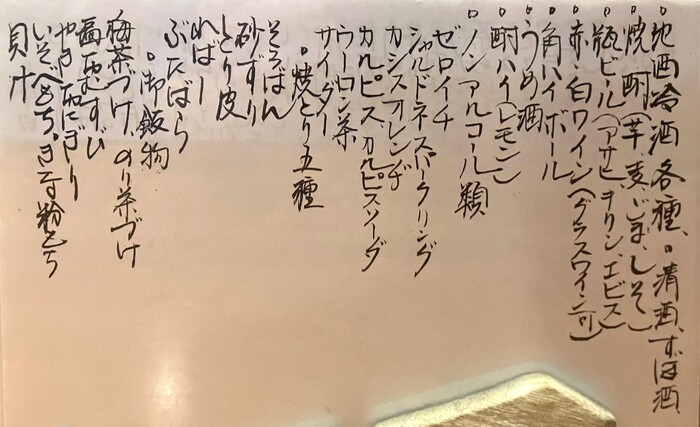 。地酒冷酒各種、。清酒、ずぼ酒
。焼酎(芋、麦、ごま、しそ)
。瓶ビール(アサヒ、キリン、エビス)
。赤・白ワイン(グラスワイン可)
。角ハイボール
。うめ酒
。酎ハイ(レモン)
。ノンアルコール類
ゼロイチ
シャルドネスパークリング
カシスオレンヂ
カルピス、カルピスソーダ
ウーロン茶
サイダー
。焼とり五種
そろばん
砂ずり
とり皮
ればー
ぶたばら
。御飯物
梅茶づけ、のり茶づけ
むすび
やきおにぎり
いそべもち、きな粉もち
貝汁